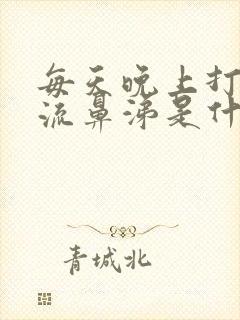 每天晚上打
流鼻涕是什
青城北